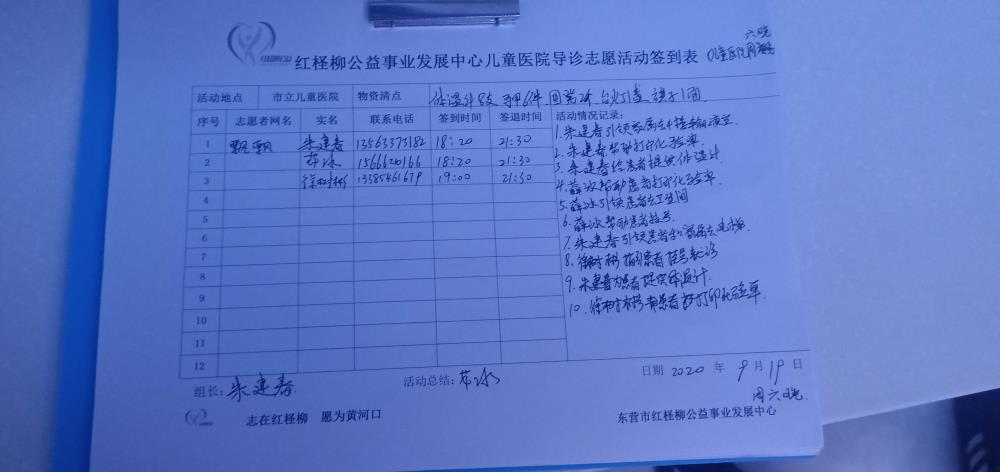 六晚
红柽柳公益事业发展中心儿童医院导诊志愿活动签到表 儿童医院
活动地点 市立儿童医院 物资清点
序号 志愿者网名 实名 联系电话 签到时间 签退时间 活动情况记录:
1 飘飘 朱建春 13563375182 18:20 21:30
2 薛冰 15666210166 18:20 21:30
3 徐树彬 13385461679 19:00 21:30
4
5
6
7
8
9
10
11
12
1.朱建春引领家属去
2.朱建春帮助打印化验单
3.朱建春给患者提供体温计
4.薛冰帮助患者打印化验单
5.薛冰引领患者去卫生间
6.薛冰帮助患者挂号
7.朱建春引领患者和家属去电梯
8.徐树彬指引患者挂号就诊
9.朱建春为患者提供体温计.
10.徐树彬帮患者打印化验单.
组长: 朱建春 活动总结: 薛冰 日期 2020 年 9 月 19 日
周六晚
志在红柽柳 愿为黄河口 东营市红柽柳公益事业发展中心